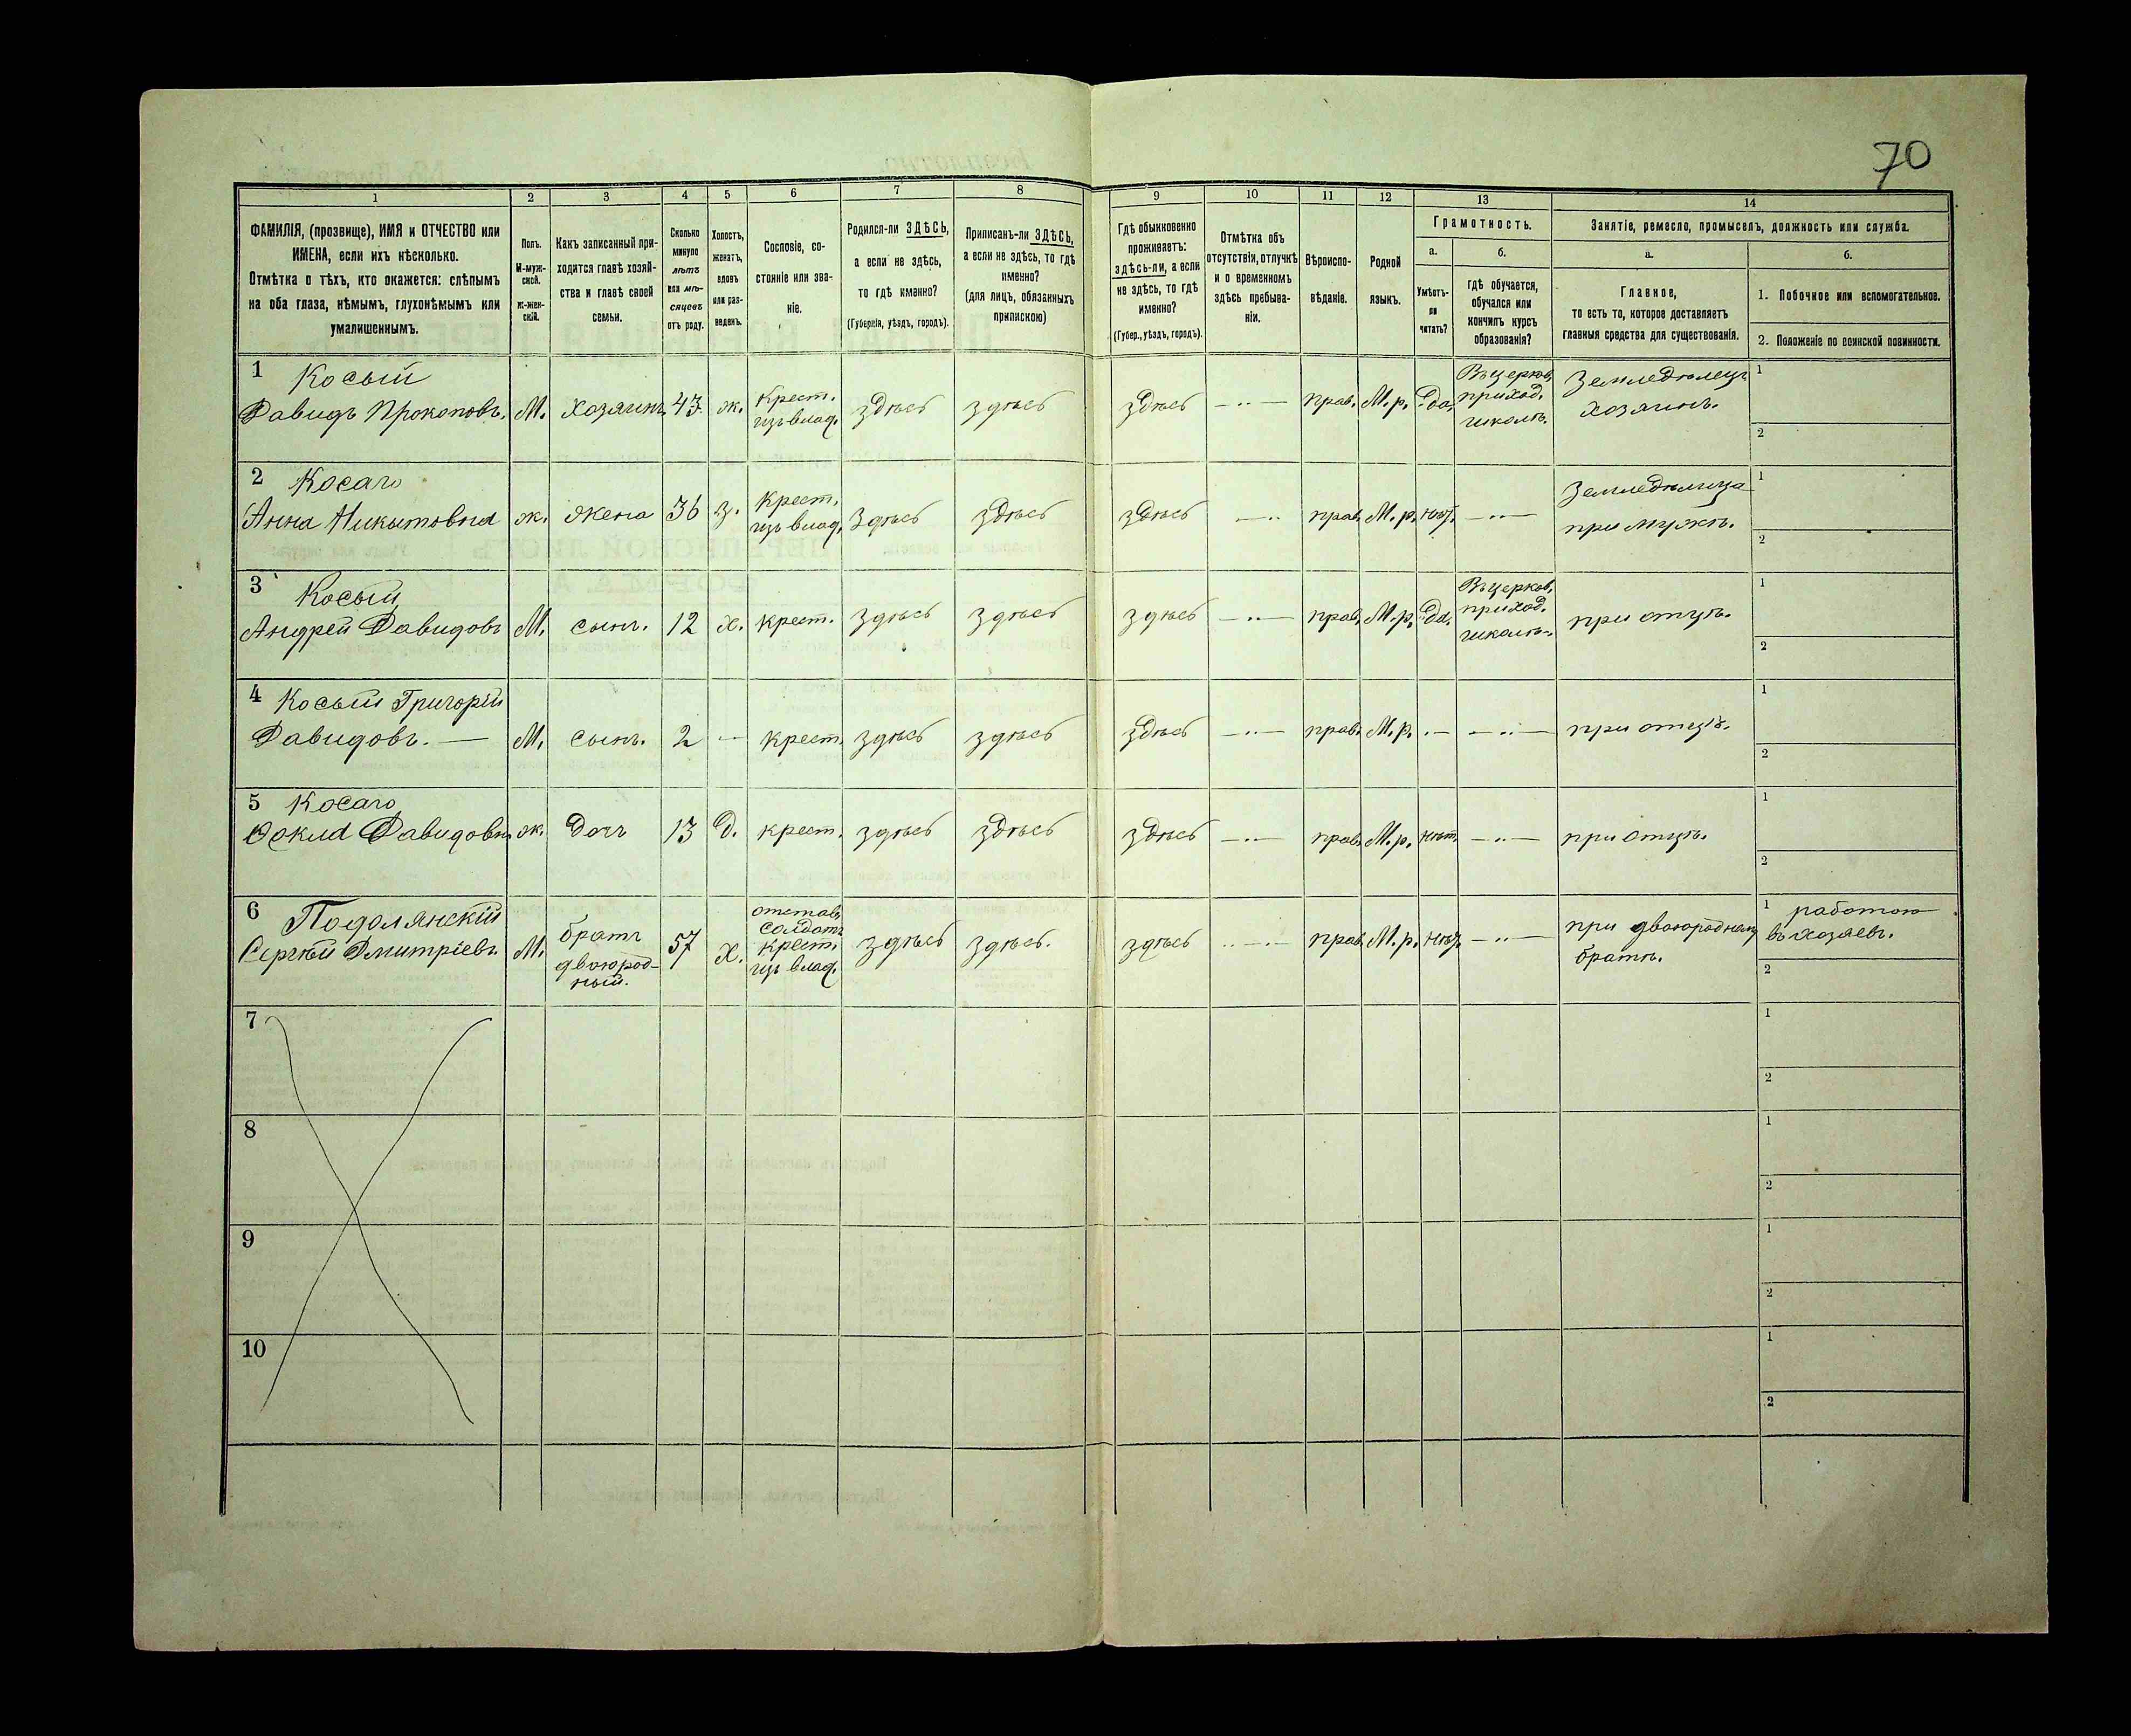 70
1
2
3
4
5
6
7
8
9
10
11
12
13
14
ФАМИЛІЯ, (прозвище), ИМЯ и ОТЧЕСТВО или
ИМЕНА, если ихъ нѣсколько.
Отмѣтка о тѣхъ, кто окажется: слѣпымъ
на оба глаза, нѣмымъ, глухонѣмымъ или
умалишеннымъ.
Полъ.
М-муж-
ской.
Ж-жен-
скій.
Какъ записанный при-
ходится главѣ хозяй-
ства и главѣ своей
семьи.
Сколько
минуло
лѣтъ
или мѣ-
сяцевъ
отъ роду.
Холостъ,
женатъ,
вдовъ
или раз-
веденъ.
Сословіе, со-
стояніе или зва-
ніе.
Родился-ли ЗДѢСЬ,
а если не здѣсь,
то гдѣ именно?
(Губернія, уѣздъ, городъ).
Приписанъ-ли ЗДѢСЬ,
а если не здѣсь, то гдѣ
именно?
(для лицъ, обязанныхъ
припискою)
Гдѣ обыкновенно
проживаетъ:
здѣсь-ли, а если
не здѣсь, то гдѣ
именно?
(Губер., уѣздъ, городъ).
Отмѣтка объ
отсутствіи, отлучкѣ
и о временномъ
здѣсь пребыва-
ніи.
Вѣроиспо-
вѣданіе.
Родной
языкъ.
Грамотность.
а.
Умѣетъ-
ли
читать?
б.
гдѣ обучается,
обучался или
кончилъ курсъ
образованія?
Занятіе, ремесло, промыселъ, должность или служба.
а.
Главное,
то есть то, которое доставляетъ
главныя средства для существованія.
б.
1. Побочное или вспомогательное.
2. Положеніе по воинской повинности.
1 Косый
Давидъ Прокоповъ. М. хозяинъ 43 ж. крест. изъ влад. здѣсь здѣсь здѣсь —„— прав. М.р. да, Въ церков. приход. школѣ. Земледѣлецъ хозяинъ.
1
2
2 Косаго
Анна Никитовна ж. жена 36 з. крест. изъ влад. здѣсь здѣсь здѣсь —„ прав. М.р. нѣт. —„— Земледѣлица при мужѣ.
1
2
3 Косый
Андрей Давидовъ М. сынъ. 12 х. крест. здѣсь здѣсь здѣсь —„— прав. М.р. да. Въ церков. приход. школѣ. при отцѣ.
1
2
4 Косый Григорій
Давидовъ. — М. сынъ. 2 — крест. здѣсь здѣсь здѣсь —„— прав. М.р. „— —„— при отцѣ.
1
2
5 Косаго
Давидовн. ж. дочь 13 д. крест. здѣсь здѣсь здѣсь —„— прав. М.р. нѣт. —„— при отцѣ.
1
2
6 Подолянскій
Сергѣй Дмитріевъ. М. братъ двоюрод-ный. 57 х. отстав. солдатъ крест. изъ влад. здѣсь здѣсь. здѣсь „—„— прав. М.р. нѣт. —„— при двоюродномъ братѣ.
1 работою
въ хозяев.
2
7
1
2
8
1
2
9
1
2
10
1
2